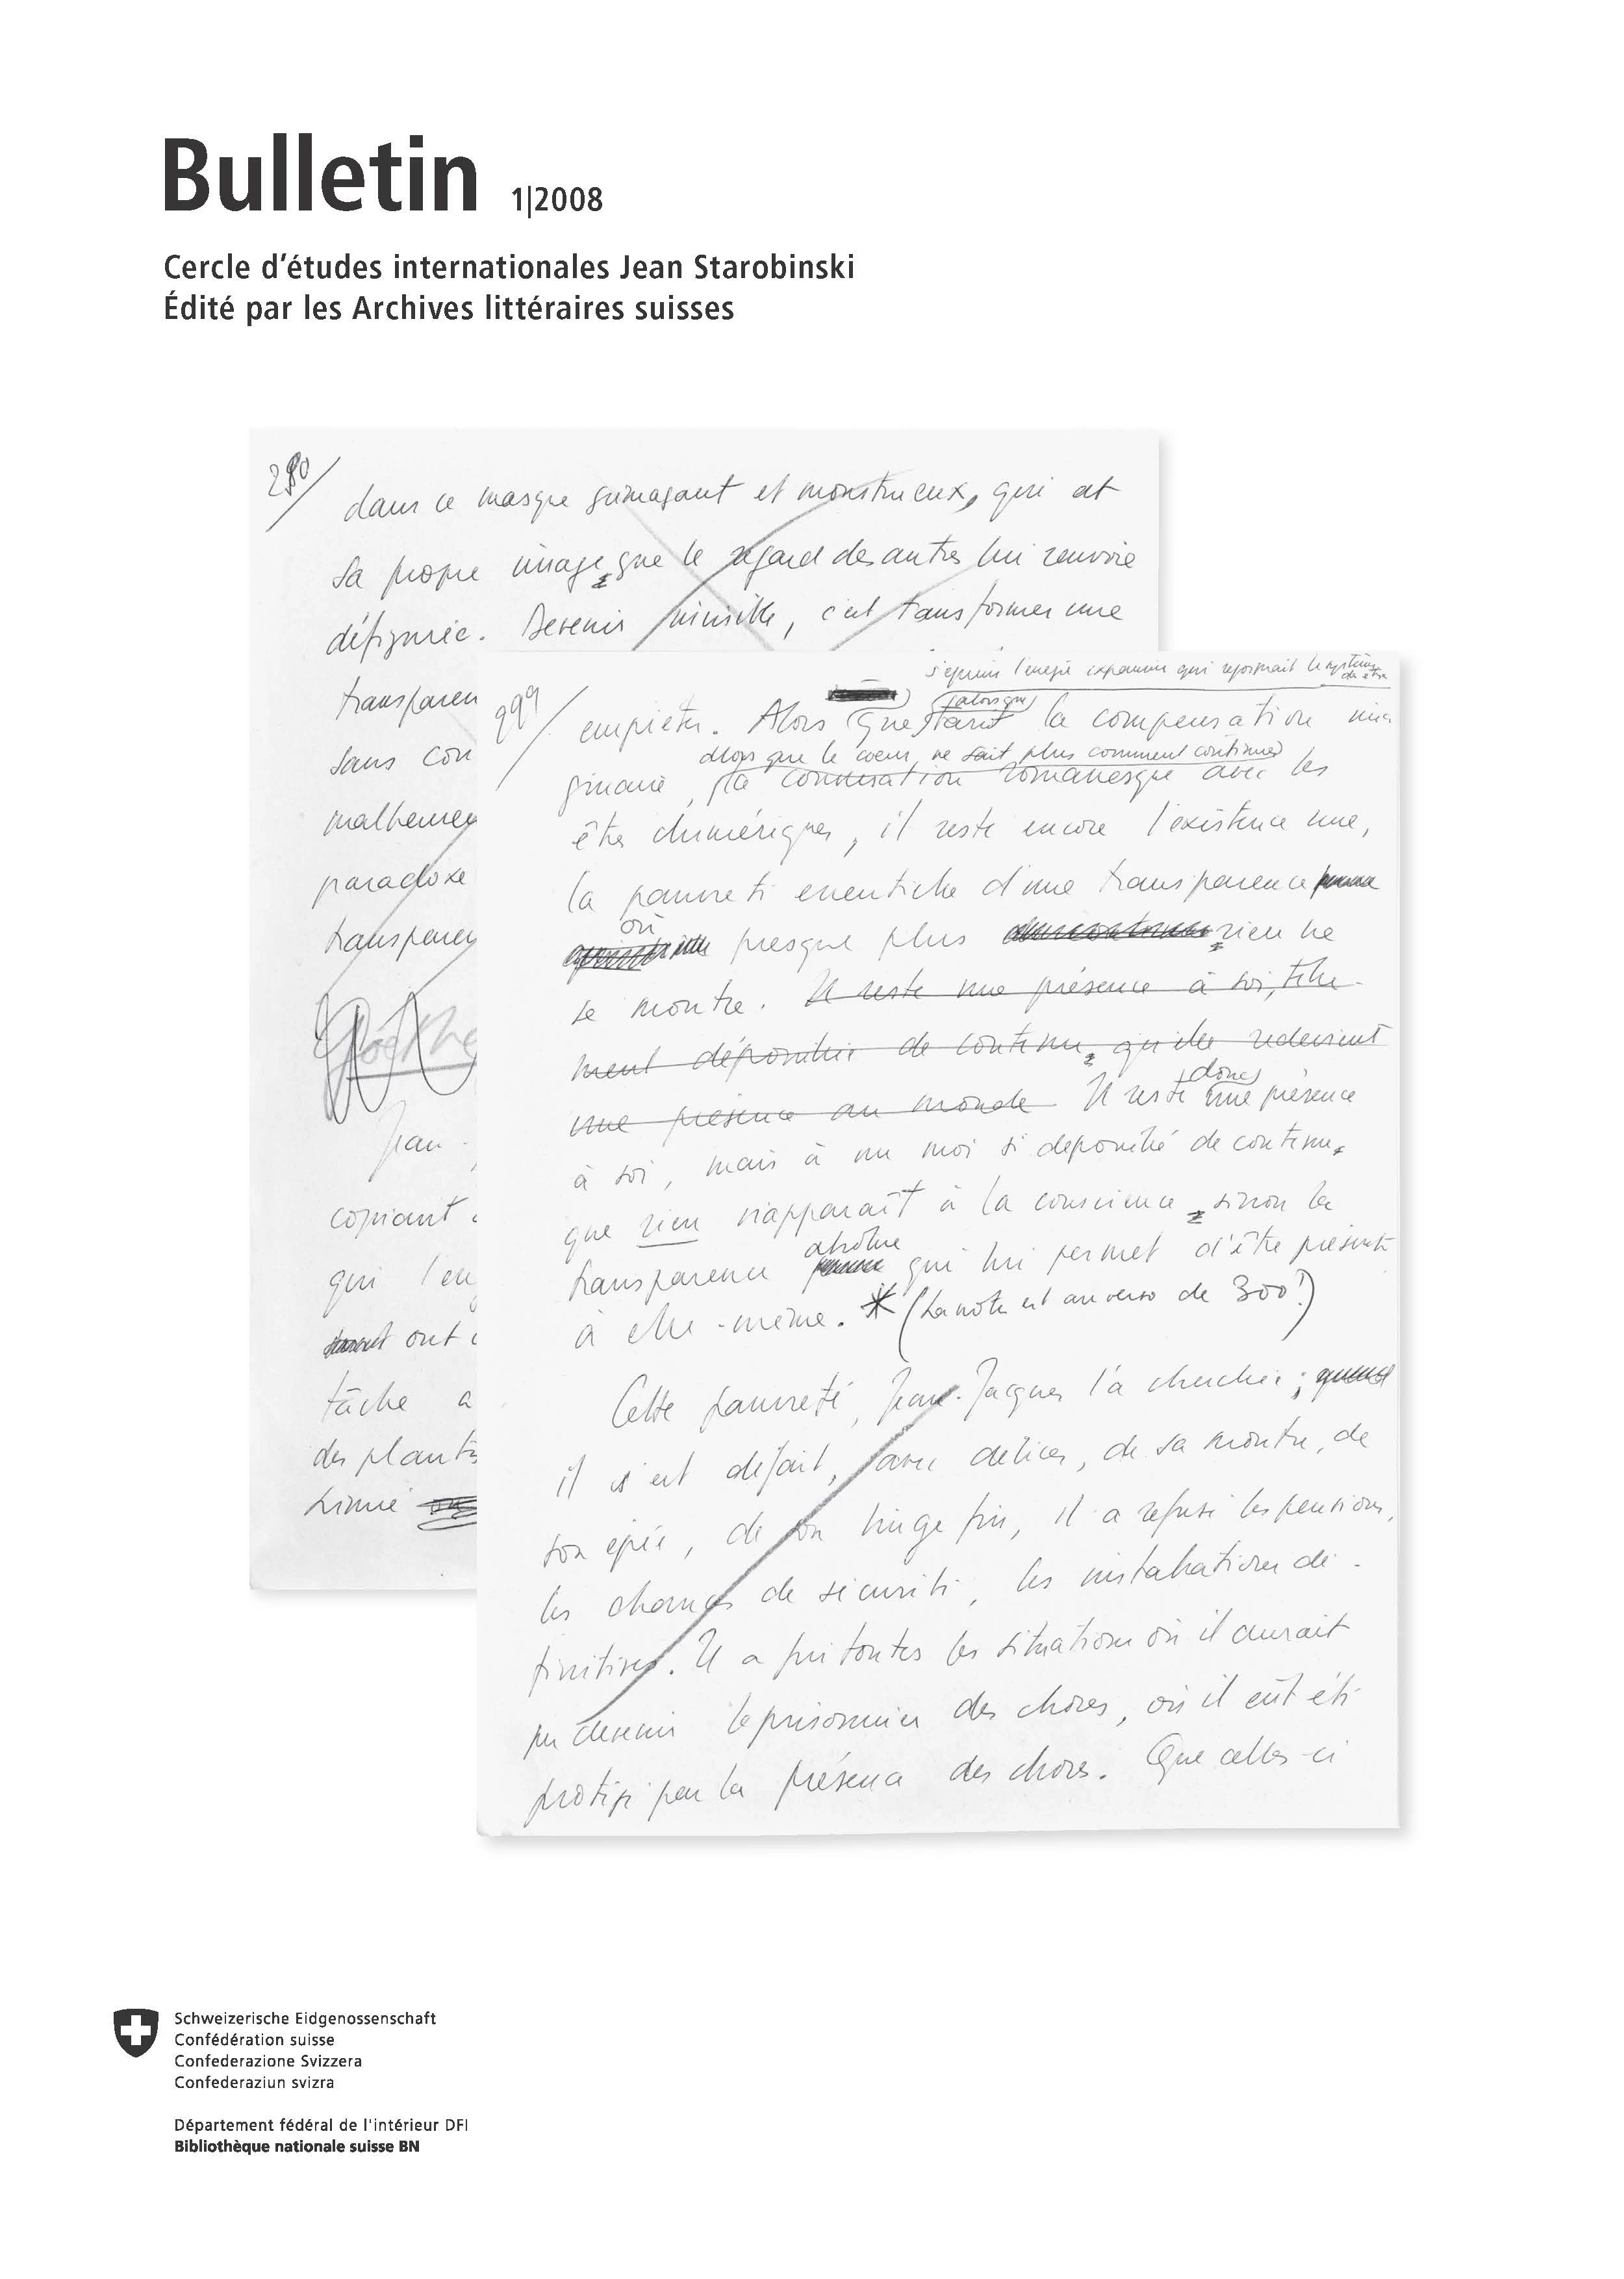 Bulletin 1|2008
Cercle d'études internationales Jean Starobinski
Édité par les Archives littéraires suisses
280
dans ce masque grimaçant et monstrueux, qui est
sa propre image, que le regard des autres lui renvoie
défigurée. Devenir invisible, c'est transformer une
transparen
sans con
malheureu
paradoxe
transparen
Goethe
Jean-
copiant
qui l'en
ont
tâche a
des plantes
Linné
299
s'épuise l'énergie expansive qui reformait le système
empiéter. Alors que (alors que) la compensation ima-
alors que le cœur ne sait plus comment continuer
ginaire, la conversation romanesque avec les
êtres chimériques, il reste encore l'existence nue,
la pauvreté essentielle d'une transparence
où presque plus rien ne
se montre. Il reste une présence à soi, telle-
ment dépouillée de contenu, qu'elle redevient
une présence au monde Il reste donc une présence
à soi, mais à un moi si dépouillé de contenu,
que rien n'apparaît à la conscience, sinon la
transparence absolue qui lui permet d'être présente
à elle-même. * (La note est au verso de 300!)
Cette pauvreté, Jean-Jacques l'a cherchée;
il s'est défait, avec délices, de sa montre, de
son épée, de son linge fin, il a refusé les pensions,
les chances de sécurité, les installations dé-
finitives. Il a fui toutes les situations où il aurait
pu devenir le prisonnier des choses, où il eût été
protégé par la présence des choses. Que celles-ci
Schweizerische Eidgenossenschaft
Confédération suisse
Confederazione Svizzera
Confederaziun svizra
Département fédéral de l'intérieur DFI
Bibliothèque nationale suisse BN